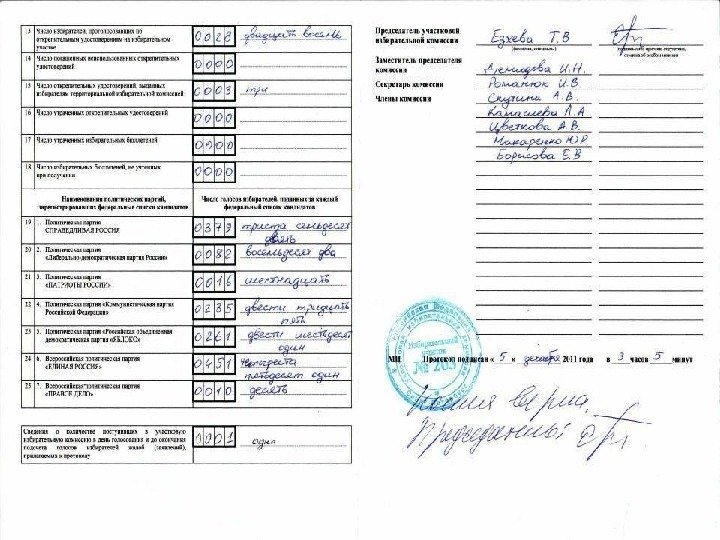 13 Число избирателей, проголосовавших по
открепительным удостоверениям на избирательном
участке
0 0 2 8 двадцать восемь
14 Число погашенных неиспользованных открепительных
удостоверений
0 0 0 0
15 Число открепительных удостоверений, выданных
избирателям территориальной избирательной комиссией
0 0 0 3 три
16 Число утраченных открепительных удостоверений
0 0 0 0
17 Число утраченных избирательных бюллетеней
0 0 0 0
18 Число избирательных бюллетеней, не учтенных
при получении
0 0 0 0
Наименования политических партий,
зарегистрировавших федеральные списки кандидатов
Число голосов избирателей, поданных за каждый
федеральный список кандидатов
19 1. Политическая партия
СПРАВЕДЛИВАЯ РОССИЯ
0 3 7 9 триста семьдесят
девять
20 2. Политическая партия
«Либерально-демократическая партия России»
0 0 8 2 восемьдесят два
21 3. Политическая партия
«ПАТРИОТЫ РОССИИ»
0 0 1 6 шестнадцать
22 4. Политическая партия «Коммунистическая партия
Российской Федерации»
0 2 3 5 двести тридцать
пять
23 5. Политическая партия «Российская объединенная
демократическая партия «ЯБЛОКО»
0 2 6 1 двести шестьдесят
один
24 6. Всероссийская политическая партия
«ЕДИНАЯ РОССИЯ»
0 4 5 1 четыреста
пятьдесят один
25 7. Всероссийская политическая партия
«ПРАВОЕ ДЕЛО»
0 0 1 0 десять
Сведения о количестве поступивших в участковую
избирательную комиссию в день голосования и до окончания
подсчета голосов избирателей жалоб (заявлений),
прилагаемых к протоколу
0 0 0 1 один
Председатель участковой
избирательной комиссии
Езхева Т.В
(фамилия, инициалы)
Заместитель председателя
комиссии
Демидова И.Н.
Секретарь комиссии
Романюк И.В
Члены комиссии
Скутина А.В.
Капашева Л.А
Цветкова А.В.
Макаренко Ю.Р
Борисова Е.В
Избирательный
участок
№ 269
МП Протокол подписан « 5 » декабря 2011 года в 3 часов 5 минут
Копия верна.